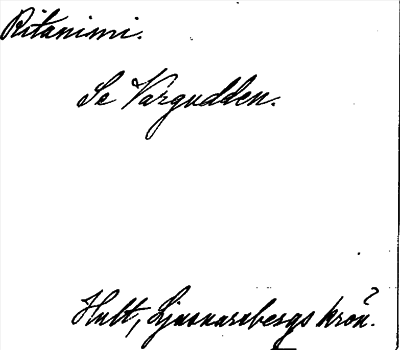 Ritanimi.
Se Vargudden.
Hult, Ljusnarsbergs krön.